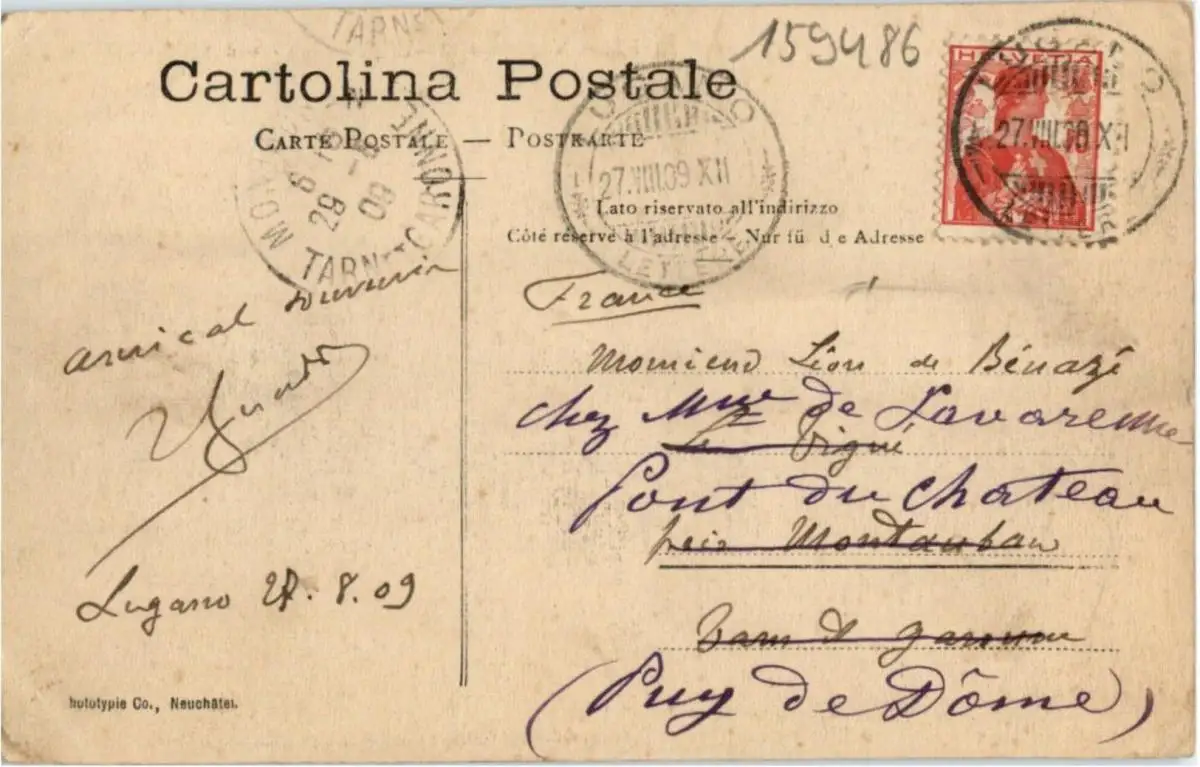 TARNE
159486
Cartolina Postale
HELVETIA
CARTE POSTALE — POSTKARTE
27.VIII.09 XII
27.VIII.09 XII
LETTERE
29
09
TARN-ET-GARONNE
Lato riservato all'indirizzo
Côté réservé à l'adresse – Nur fü d e Adresse
France
amical souvenir
Monsieur Léon de Bénazé
chez Mme de Lavarenne
La Vigne
Pont du Chateau
près Montauban
Tarn et Garonne
(Puy de Dôme)
Lugano 27.8.09
hototypie Co., Neuchâtel.